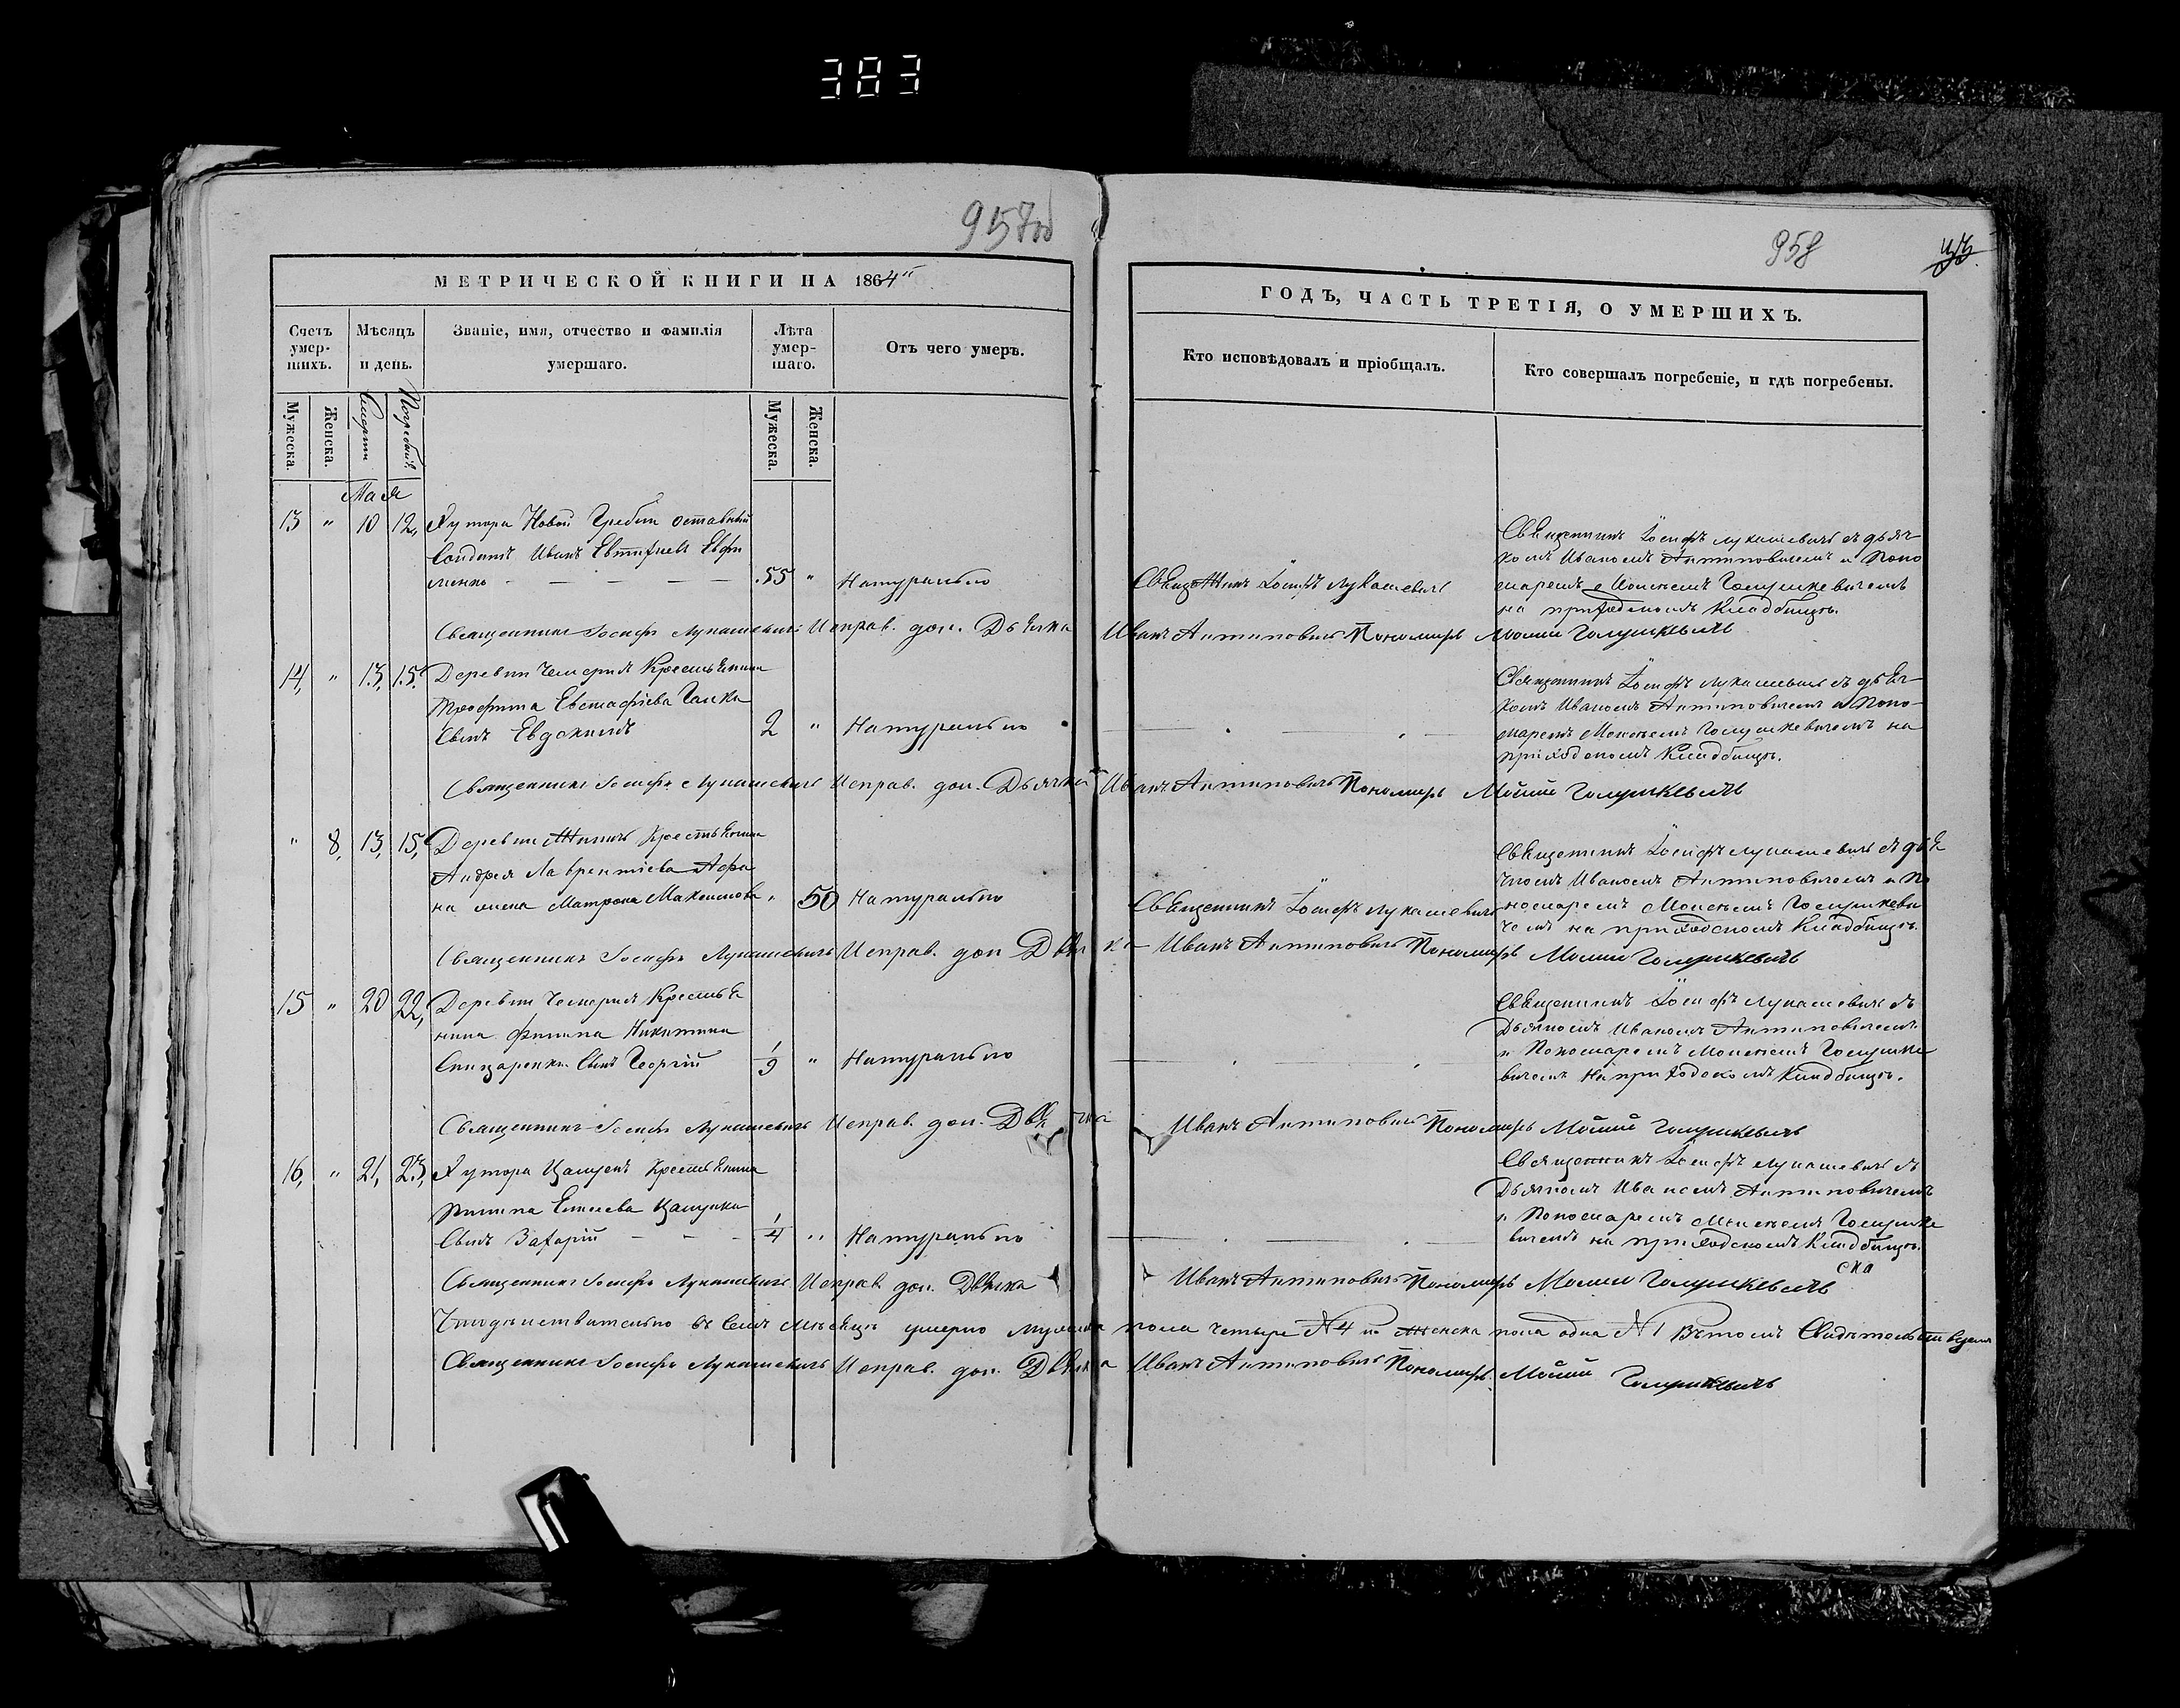 383
957об
958
МЕТРИЧЕСКОЙ КНИГИ НА 1864
ГОДЪ, ЧАСТЬ ТРЕТІЯ, О УМЕРШИХЪ.
Счетъ умерших. Мѣсяцъ и день. Званіе, имя, отчество и фамилія умершаго. Лѣта умершаго. Отъ чего умеръ.
Кто исповѣдовалъ и пріобщалъ. Кто совершалъ погребеніе, и гдѣ погребены.
Мужеска. Женска. Смерти Погребенія. Мужеска. Женска.
Мая
13 " 10 12, Хутора Новой Гребли отставный
Солдатъ Иванъ Евтифіевъ
55 " Натурально
Священникъ Іосифъ Лукашевичъ
Священникъ Іосифъ Лукашевичъ съ дьяч-
комъ Иваномъ Антиповичемъ и Поно
маремъ Моисеемъ Голушкевичемъ
на приходскомъ Кладбищѣ.
Священникъ Іосифъ Лукашевичъ Исправ. дол. Дьячка Иванъ Антиповичъ Пономарь Моисей Голушкевичъ
14, " 13, 15, Деревни Чемерня Крестьянина
Трофима Евстафіева Галки
Сынъ Евдокимъ 2 " Натурально
Священникъ Іосифъ Лукашевичъ съ дьяч-
комъ Иваномъ Антиповичемъ и Поно-
маремъ Моисеемъ Голушкевичемъ на
приходскомъ Кладбищѣ.
Священникъ Іосифъ Лукашевичъ Исправ. дол. Дьячка Иванъ Антиповичъ Пономарь Моисей Голушкевичъ
" 8, 13, 15, Деревни Крестьянина
Андрея Лаврентіева Афа
на жена Матрона Максимова " 50 Натурально
Священникъ Іосифъ Лукашевичъ
Священникъ Іосифъ Лукашевичъ съ дья
чкомъ Иваномъ Антиповичемъ и По
номаремъ Моисеемъ Голушкеви
чемъ на приходскомъ Кладбищѣ.
Священникъ Іосифъ Лукашевичъ Исправ. дол. Дьячка Иванъ Антиповичъ Пономарь Моисей Голушкевичъ
15 " 20 22, Деревни Чемерня Крестья
нина Филипа Никитина
Сынъ Георгій 1/9 " Натурально
Священникъ Іосифъ Лукашевичъ съ
Дьячкомъ Иваномъ Антиповичемъ
и Пономаремъ Моисеемъ Голушке
вичемъ на приходскомъ Кладбищѣ.
Священникъ Іосифъ Лукашевичъ Исправ. дол. Дьячка Иванъ Антиповичъ Пономарь Моисей Голушкевичъ
16, " 21, 23, Хутора Крестьянина
Сынъ Захарій 1/4 " Натурально
Священникъ Іосифъ Лукашевичъ съ
Дьячкомъ Иваномъ Антиповичемъ
и Пономаремъ Моисеемъ Голушке
вичемъ на приходскомъ Кладбищѣ.
Священникъ Іосифъ Лукашевичъ Исправ. дол. Дьячка Иванъ Антиповичъ Пономарь Моисей Голушкевичъ
Что дѣйствительно въ семъ мѣсяцѣ умерло мужеска пола четыре №4 и женска пола одна №1 въ томъ
Священникъ Іосифъ Лукашевичъ Исправ. дол. Дьячка Иванъ Антиповичъ Пономарь Моисей
Голушкевичъ